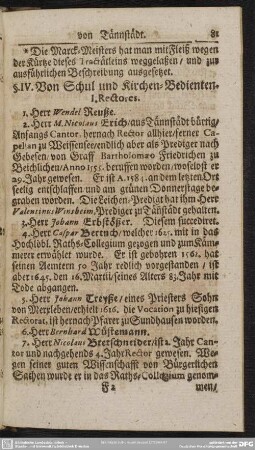 von Tännstädt. 81
* Die Marck-Meisters hat man mit Fleiß wegen
der Kürtze dieses Tractätleins weggelassen / und zur
ausführlichen Beschreibung ausgesetzet.
§. IV. Von Schul und Kirchen-Bedienten.
I. Rectores.
1. Herr Wendel Reuße.
2. Herr M. Nicolaus Erich / aus Tännstädt bürtig /
Anfangs Cantor, hernach Rector allhier / ferner Ca-
pellan zu Weissensee / endlich aber als Prediger nach
Gebesen / von Graff Bartholomæo Friedrichen zu
Beichlichen / Anno 1556. beruffen worden / woselbst er
29. Jahr gewesen. Er ist A. 1584. an dem letzten Ort
seelig entschlaffen und am grünen Donnerstage be-
graben worden. Die Leichen-Predigt hat ihm Herr
Valentinus Winsheim, Prediger zu Vanstädt gehalten.
3. Herr Johann Erbstößer. Diesem succediret.
4. Herr Caspar Bertuch / welcher 1625. mit in das
Hochlöbl. Raths-Collegium gezogen und zum Käm-
merer erwählet wurde. Er ist gebohren 1561. hat
seinen Aemtern 50. Jahr redlich vorgestanden / ist
aber 1645. den 16. Martii / seines Alters 83. Jahr mit
Tode abgangen.
5. Herr Johann Treyße / eines Priesters Sohn
von Merxleben / erhielt 1626. die Vocation zu hiesigen
Rectorat, ist hernach Pfarer zu Sundhausen worden.
6. Herr Bernhard Wüstemann.
7. Herr Nicolaus Bretschneider / ist 2. Jahr Can-
tor und nachgehends 4. Jahr Rector gewesen. We-
gen seiner guten Wissenschafft von Bürgerlichen
Sachen wurde er in das Raths-Collegium genom-
F 2 men /